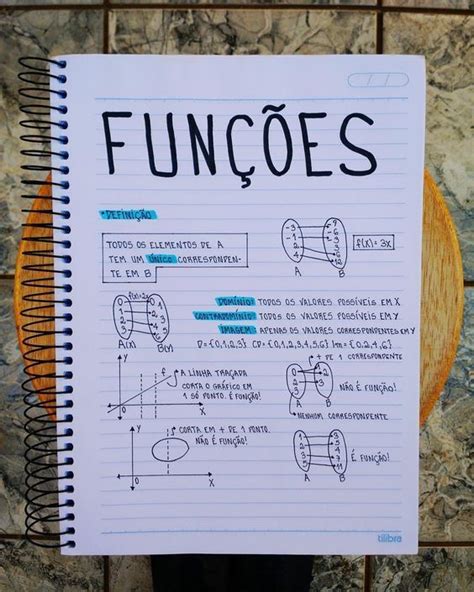 FUNÇÕES
DEFINIÇÃO
TODOS OS ELEMENTOS DE A
TEM UM ÚNICO CORRESPONDEN-
TE EM B
A
B
f(x)=3x
f(x)=2x
A(x)
B(x)
DOMÍNIO: TODOS OS VALORES POSSÍVEIS EM X
CONTRADOMÍNIO: TODOS OS VALORES POSSÍVEIS EM Y
IMAGEM: APENAS OS VALORES CORRESPONDENTES EM Y
D={0,1,2,3} CD={0,1,2,3,4,5,6} Im={0,2,4,6}
Y
f
A LINHA TRAÇADA
CORTA O GRÁFICO EM
1 SÓ PONTO. É FUNÇÃO!
0
X
+ DE 1 CORRESPONDENTE
NÃO É FUNÇÃO!
A
B
NENHUM CORRESPONDENTE
Y
CORTA EM + DE 1 PONTO.
NÃO É FUNÇÃO!
0
X
É FUNÇÃO!
A
B
tilibra